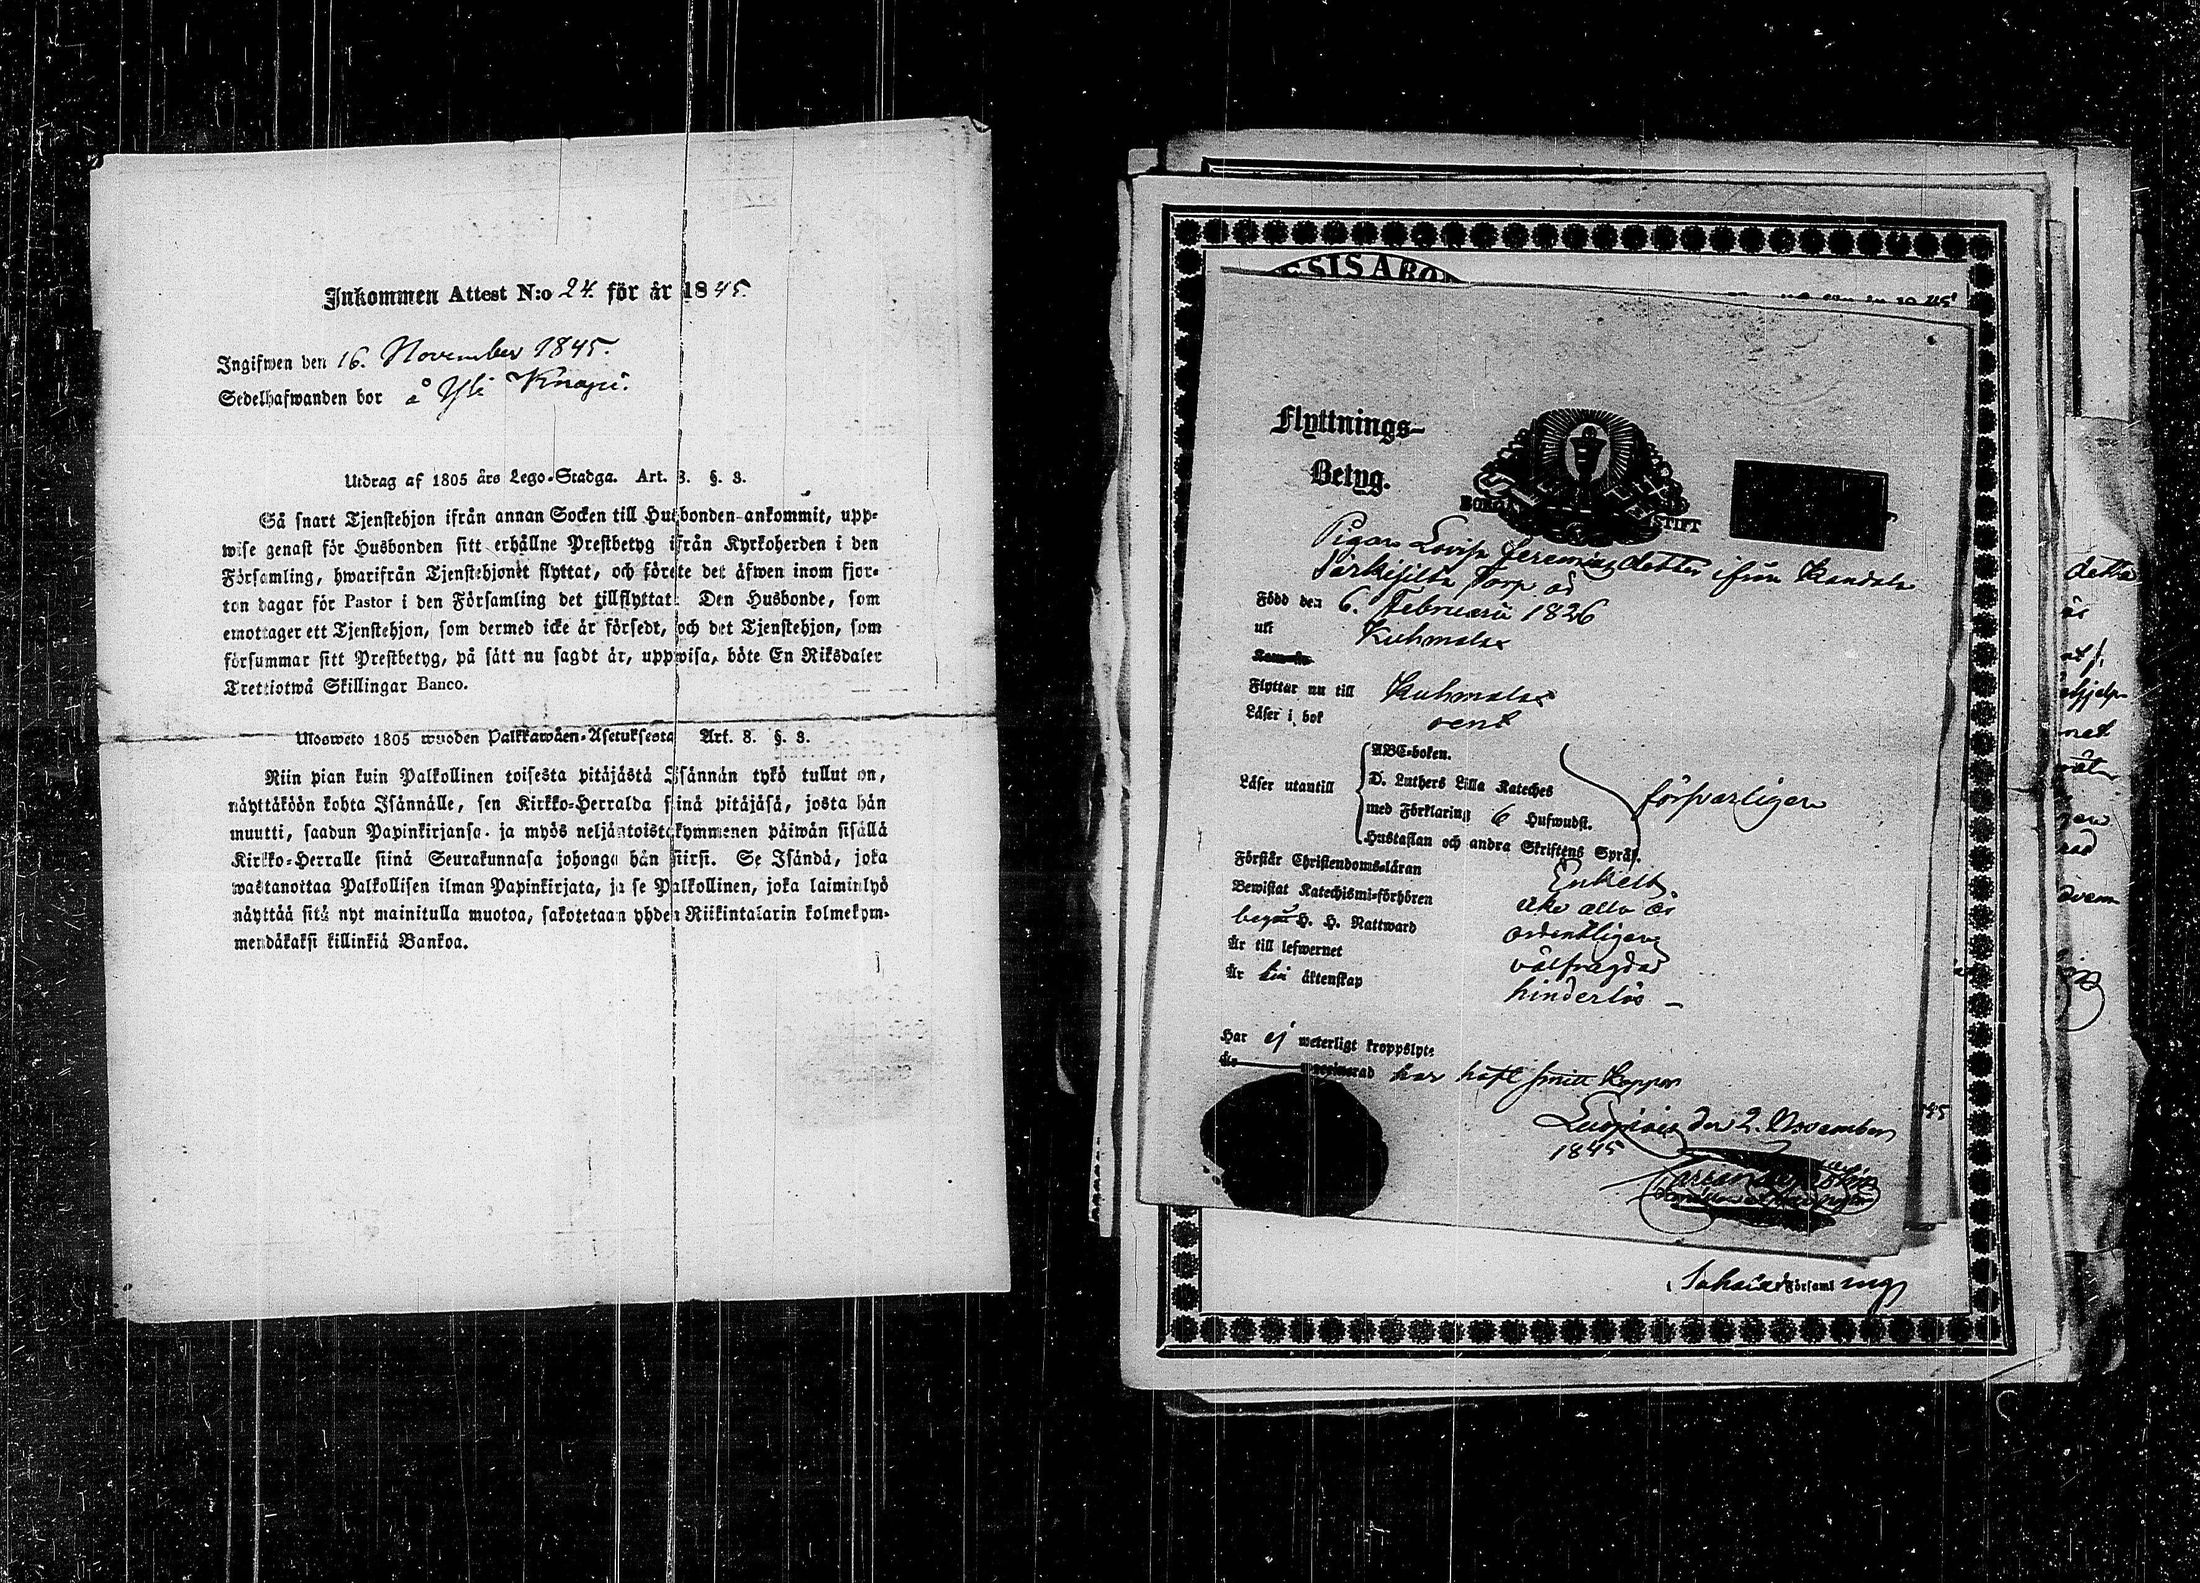 Inkommen Attest N:o 24. för år 1845.
Ingifwen den 16. November 1845.
Sedelhafwanden bor å Yli Knapi.
Utdrag af 1805 års Lego-Stadga. Art. 8. §. 3.
Så snart Tjenstehjon ifrån annan Socken till Husbonden ankommit, upp-
wise genast för Husbonden sitt erhållne Prestbetyg ifrån Kyrkoherden i den
Församling, hwarifrån Tjenstehjonet flyttat, och förete det äfwen inom fjor-
ton dagar för Pastor i den Församling det tillflyttat. Den Husbonde, som
emottager ett Tjenstehjon, som dermed icke är försedt, och det Tjenstehjon, som
försummar sitt Prestbetyg, på sätt nu sagdt är, uppwisa, böte En Riksdaler
Trettiotwå Skillingar Banco.
Ulosweto 1805 wuoden Palkkawäen-Asetuksesta Art. 8. §. 3.
Niin pian kuin Palkollinen toisesta pitäjästä Isännän tykö tullut on,
näyttäköön kohta Isännälle, sen Kirkko-Herralda siinä pitäjäsä, josta hän
muutti, saadun Papinkirjansa ja myös neljäntoistakymmenen päiwän sisällä
Kirkko-Herralle siinä Seurakunnasa johonga hän siirsi. Se Isändä, joka
wastanottaa Palkollisen ilman Papinkirjata, ja se Palkollinen, joka laiminlyö
näyttää sitä nyt mainitulla muotoa, sakotetaan yhden Riikintalarin kolmekym-
mendäkaksi killinkiä Bankoa.
Flyttnings-
Betyg.
BORGÅ STIFT
Pigan Lovisa Jeremiasdotter ifrån Kandala
Torp är
Född den 6. Februarii 1826
uti Kuhmalax
Flyttar nu till Kuhmalax
Läser i bok rent
Läser utantill
ABC-boken.
D. Luthers Lilla Kateches
med Förklaring 6 Hufwudst.
Hustaflan och andra Skriftens Språk.
försvarligen
Förstår Christendoms-läran Enkelt.
Bewistat Katechismi-förhören icke alla år
begår H. H. Nattward ordentligen
Är till lefwernet välfrägdad
Är till äktenskap hinderlös
Har ej weterligt kroppslyte
Är vaccinerad har haft smitt koppor
den 2. November
1845
i Sahalax Församling